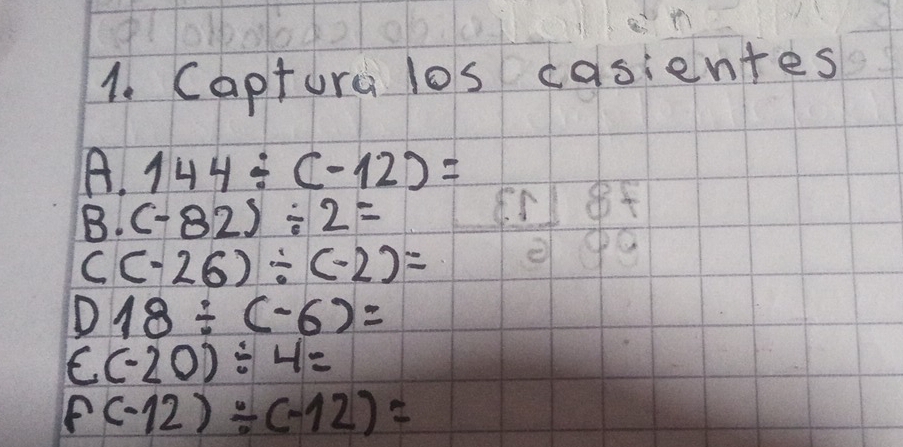 1. Captura los casientes
A. 144 ÷ (-12) =
B. (-82) ÷ 2 =
C (-26) ÷ (-2) =
D 18 ÷ (-6) =
E (-20) ÷ 4 =
F (-12) ÷ (-12) =